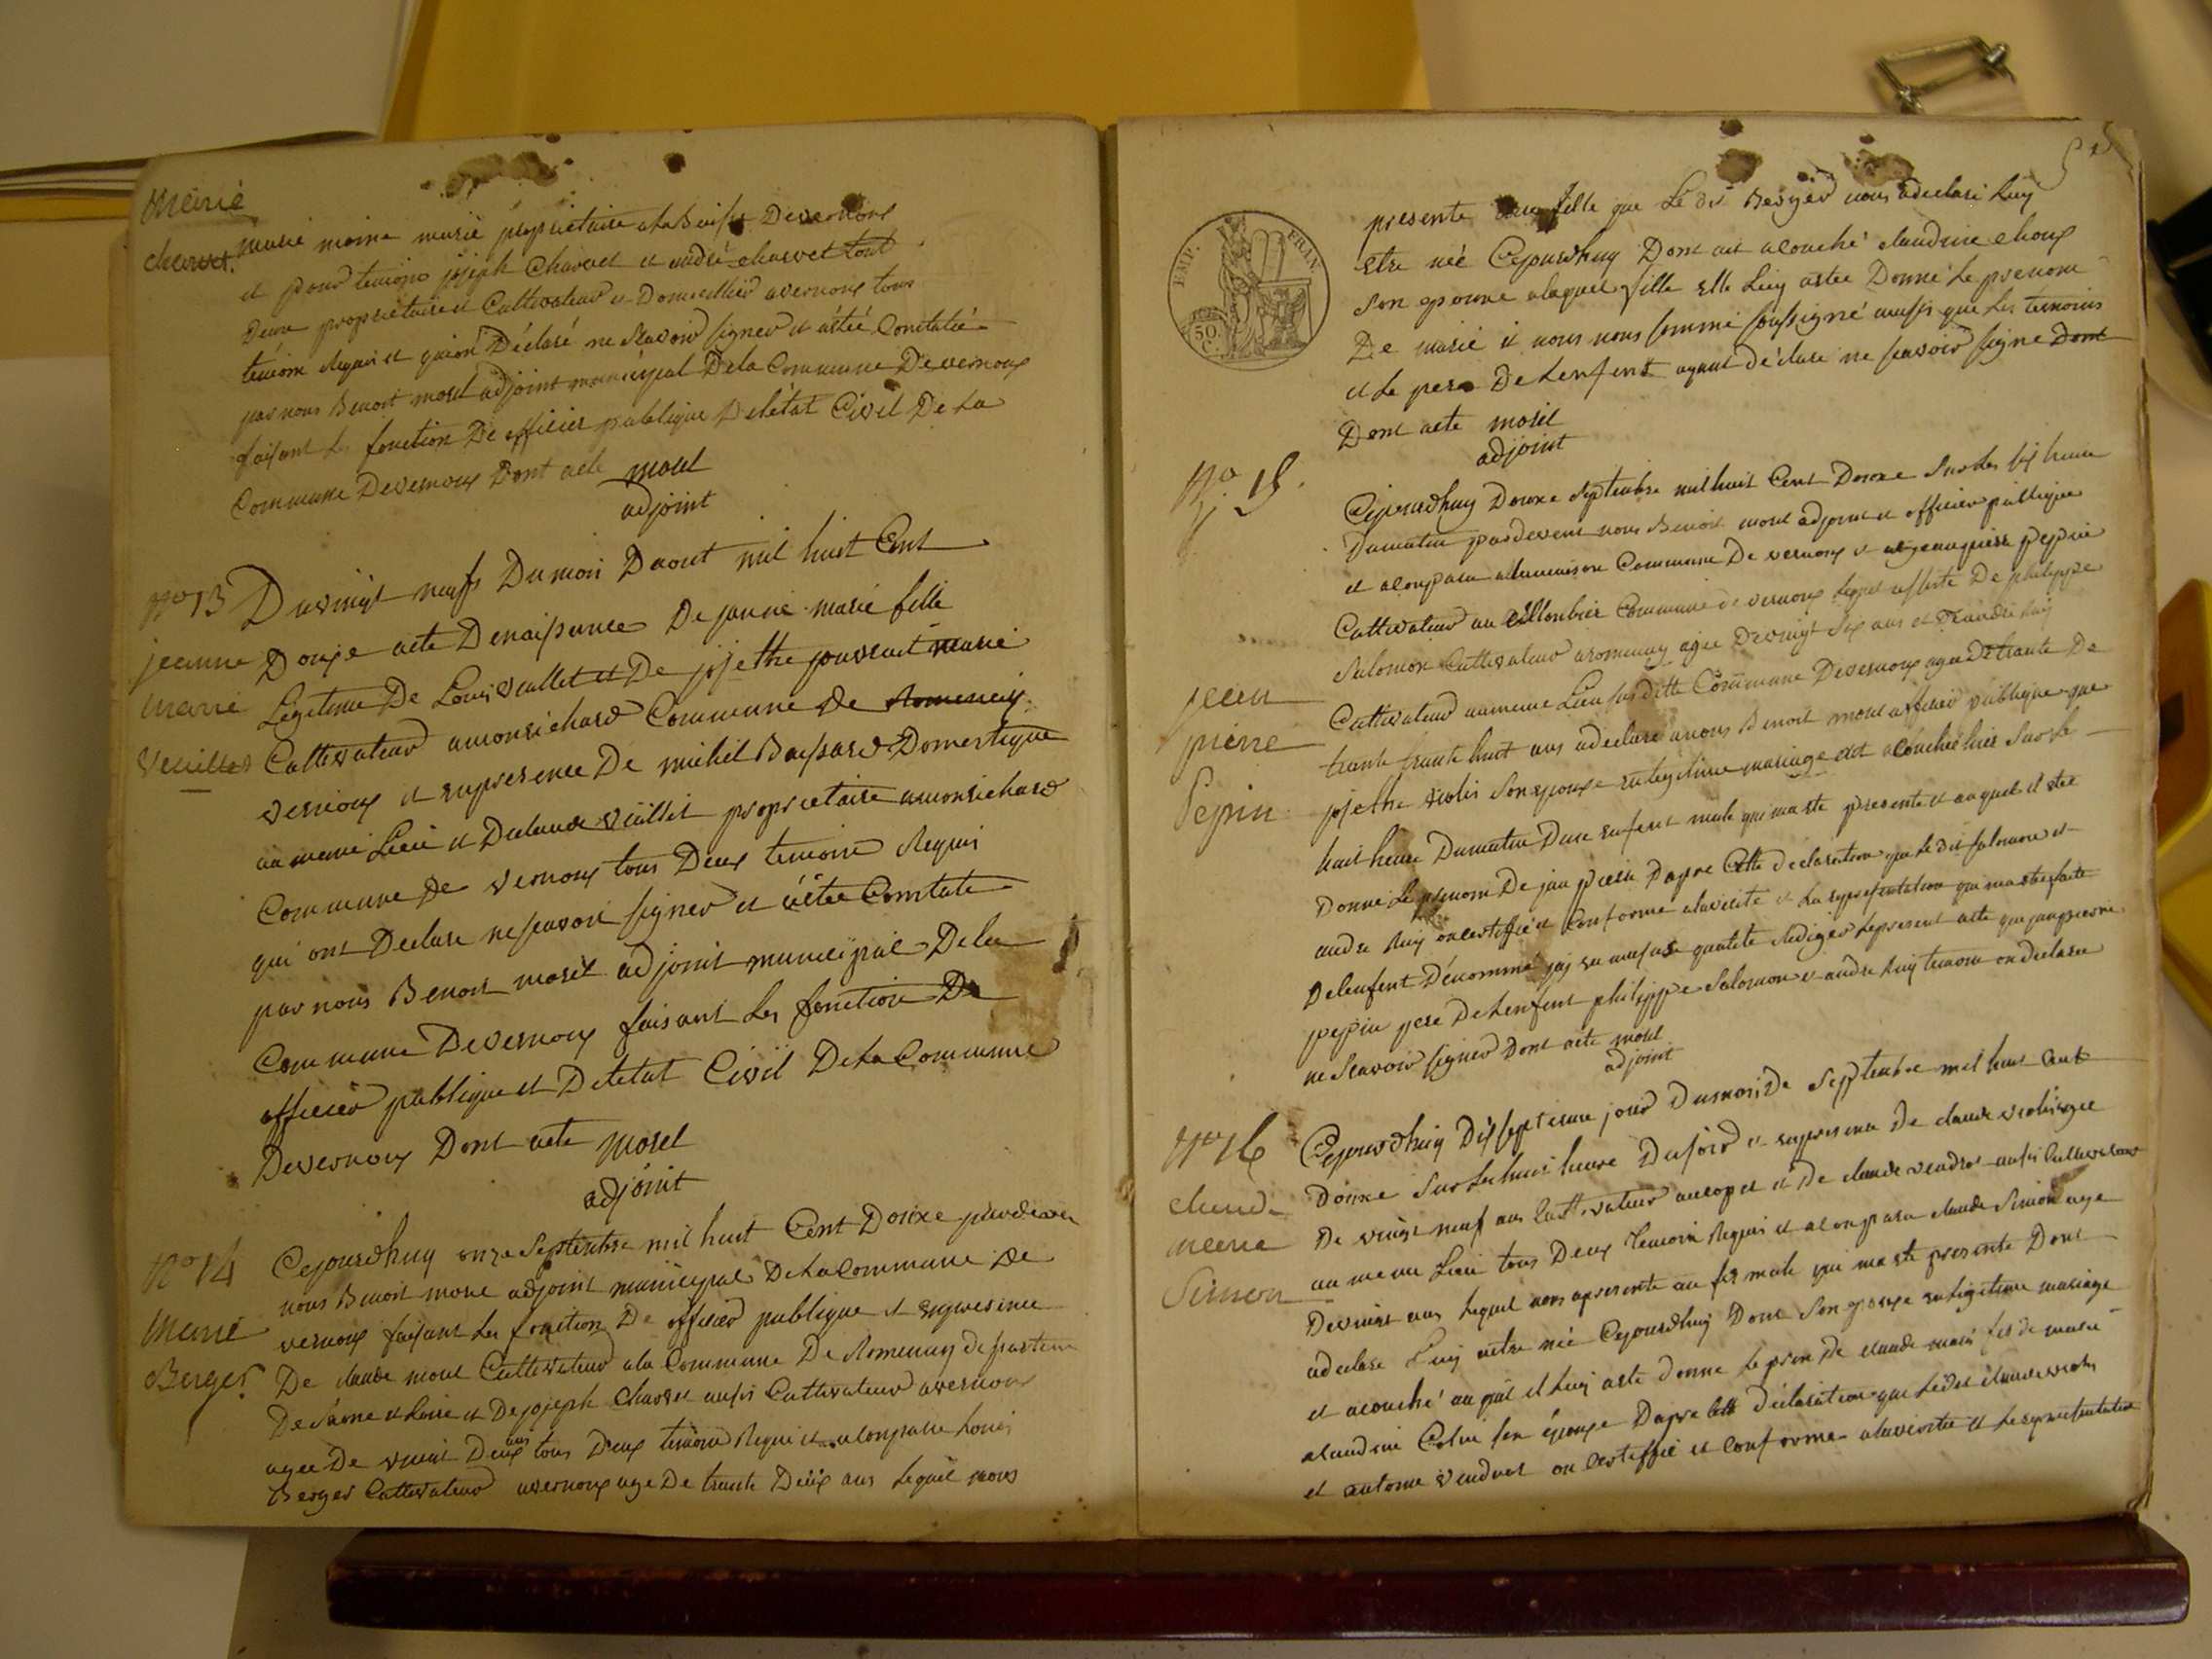 Marie
charvet.
marie moine marié propriétaire a la Devernoux
et pour temoins joseph Charvet et andré charvet tout
Deux propriétaire et Cultivateur et Domicillier avernoux tous
temoins Requis et qui ont Déclaré ne Scavoir Signer et aété Constatée
par nous Benoit morel adjoint municipal Dela Commune Devernoux
faisant les fonction De officier publique De létat Civil De La
Commune Devernoux Dont acte morel
adjoint
No 13
jeanne
marie
Veuillet
Du vingt neufs Dumois Daout mil huit Cent
Douze acte Denaissance De janne marie fille
Légetime De Louis vuillet et De josette marié
Cultivateur amonrichard Commune de Romenay
vernoux et enpresence De michel Bassard Domestique
au meme Lieu et Declaude vuillet propriétaire amonrichard
Commune De vernoux tous Deux temoins Requis
qui ont Declare nescavoir signer et aétée Constate
par nous Benoit morel adjoint municipal Dela
Commune Devernoux faisant les fonction De
officier publique et Detetat Civil DeLa Commune
Devernoux Dont acte morel
adjoint
No 14
Marie
Berger
Cejourdhuy onze Septembre mil huit Cent Douze pardevan
nous Benoit morel adjoint municipal DeLaCommune De
vernoux faisant les fonction De officier publique et enpresence
De claude morel Cultivateur ala Commune De Romenay departem
DeSaone et Loire et Dejoseph Charvet aussi Cultivateur avernoux
agee De vingt Deux ans tous Deux temoins Requi et acomparu Louis
Berger Cultivateur avernoux age De trante Deux ans Lequel nous
5
IMP. FRAN.
50 C.
presente une fille que Le dit Berger nous adeclaré Luy
etre née Cejourdhuy Dont ait acouché claudine choux
Son epouse alaquel fille elle Luy aetee Donné Le prenom
De marie et nous nous sommé soussigné aussi que Les temoins
et Le pere DeLenfent ayant déclare ne scavoir signe Dont
Dont acte morel
adjoint
No 15.
jean
pierre
Pepin
Cejourdhuy Douze Septembre mil huit Cent Douze Sur les six heure
Dumatin pardevent nous Benoit morel adjoint et officier publique
et acomparu alamaison Commune De vernoux et pepin
Cultivateur au Commune de vernoux De philippe
Salomon Cultivateur aromenay agée Devingt Six ans et Deandré Ruy
Cultivateur aumeme Lieu susditte Commune Devernoux age De trante De
trante trante huit ans adeclaré anous Benoit morel officier publique que
josette violis Son epouse enlegitime mariage est acouchée hier Sur Le
huit heure Dumatin Dun enfent male qui maeté presente et auquel il etee
Donné Le prenom De jan pierre Dapre Cette declaration que Le dit Salomon et
andre Ruy oncertiffié et Conforme alavérité et La representation qui maeté faite
DeLenfent Dénommé jaj en mafase qualité Rediger Lepresent acte que janpierre
pepin pere DeLenfent philippe Salomon et andre Ruy temoin on declaré
ne Scavoir signer Dont acte morel
adjoint
No 16
claude
marie
Simon
Cejourdhuy Dix septieme jour Dumois De Septembre mil huit Cent
Douze Sur Les huit heure Dusoir et enpresence De claude violis agee
De vingt neuf ans Cultivateur et De claude vendret aussi Cultivateur
au meme Lieu tous Deux Temoin Requis et acomparu claude Simon age
Devingt ans Lequel nous apresente un fis male qui maeté presente Dont
adeclaré Luy aetre née Cejourdhuy Dont Son epouse enlegitime mariage
et acouché auquel il Luy aete donne Le prenom De claude marie fis de marié
claudine Colin son épouse Dapre Cette déclaration que Ledit claude violis
et antoine vendret on Certiffié et Conforme alaverite et Lerepresentation